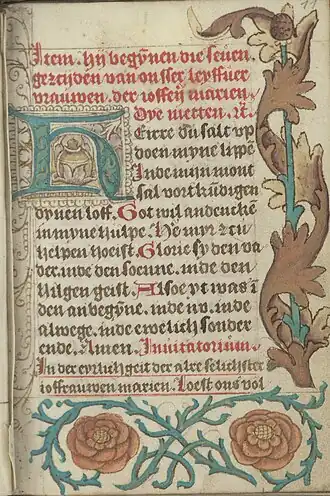 Item. hy begynen die seuen
gezyden van onsser leyffuer
vrauwen. der ioffer marien.
Dye metten. &c.
HErre du salt vp
doen myne lippe
Inde mijn mont
sal vortkundigen
dynen loff. Got wil andencke
in myne hulpe. He myr zu
helpen hoeist. Glorie sy den va
der. inde den soenne. inde den
hilgen geist. Alsoe yt was i
den anbegyne. inde nv. inde
alwege. inde ewelich sonder
ende. Amen. Inuitatorium.
In der eyrlicheit der alre selichster
ioffrauwen marien. Loest ons vol